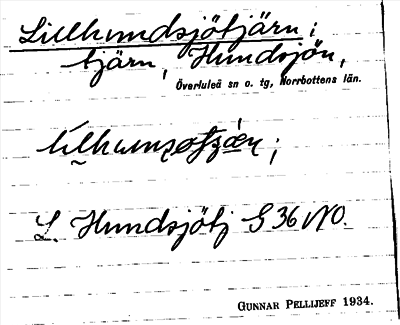 Lillhundsjötjärn;
tjärn, Hundsjön,
Överluleå sn o. tg, Norrbottens län.
L. Hundsjötj S 36 NO.
GUNNAR PELLIJEFF 1934.